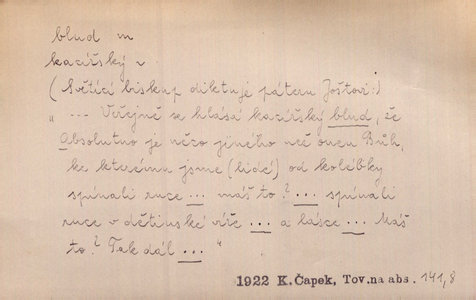 blud m
kacířský ~
(Světící biskup diktuje páteru Joštovi:)
"... Veřejně se hlásá kacířský blud, že
Absolutno je něco jiného než onen Bůh,
ke kterému jsme (lidé) od kolébky
spínali ruce ... máš to? ... spínali
ruce v dětinské víře ... a lásce ... Máš
to? Tak dál ..."
1922 K.Čapek, Tov.na abs. 141,8